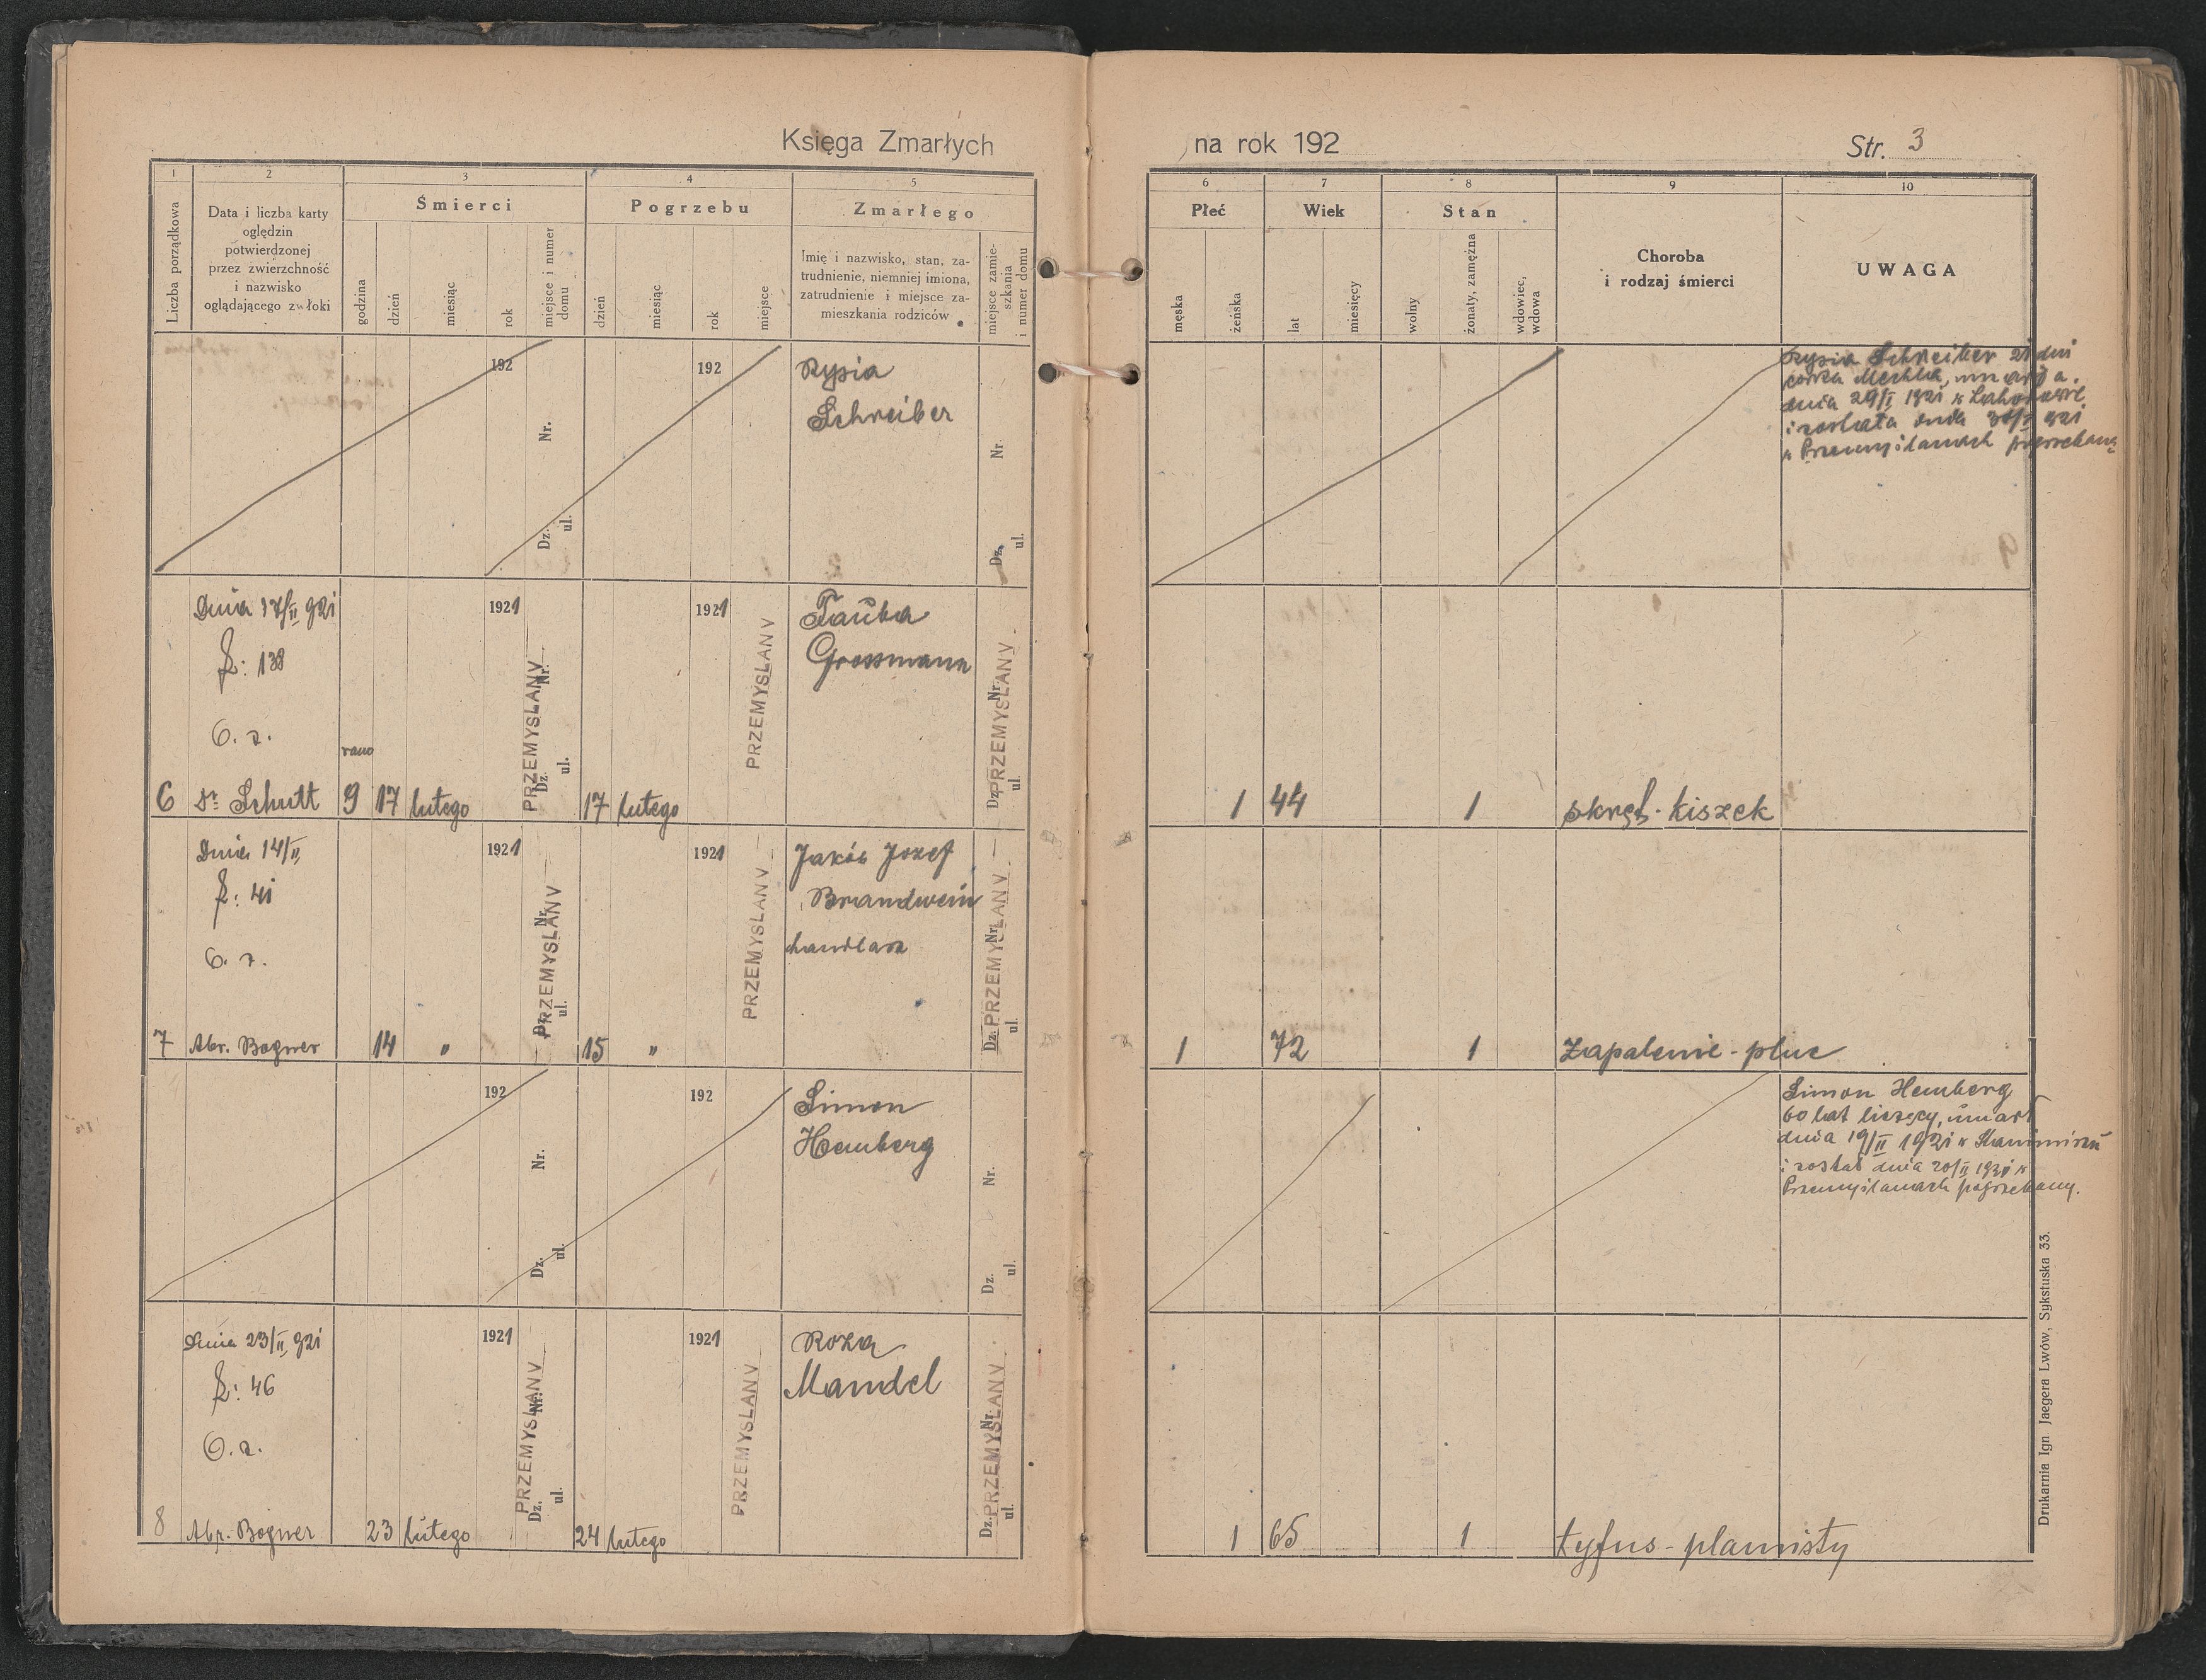 Księga Zmarłych
na rok 192
Str. 3
1
2
3
4
5
6
7
8
9
10
Liczba porządkowa
Data i liczba karty
oględzin
potwierdzonej
przez zwierzchność
i nazwisko
oglądającego zwłoki
Śmierci
godzina
dzień
miesiąc
rok
miejsce i numer
domu
Pogrzebu
dzień
miesiąc
rok
miejsce
Zmarłego
Imię i nazwisko, stan, za-
trudnienie, niemniej imiona,
zatrudnienie i miejsce za-
mieszkania rodziców
miejsce zamie-
szkania
i numer domu
Płeć
męska
żeńska
Wiek
lat
miesięcy
Stan
wolny
żonaty, zamężna
wdowiec,
wdowa
Choroba
i rodzaj śmierci
UWAGA
192
Nr.
Dz.
ul.
192
Rypia
Schreiber
Nr.
Dz.
ul.
Schreiber 21 dni
córka umarła
dnia 29/I 1921
i została dnia
w Przemyślanach pogrzebaną
Dnia 17/II 921
L: 138
O. z.
Dr. Schutt
6
rano
9
17
lutego
1921
PRZEMYSLANY
Nr.
Dz.
ul.
17
lutego
1921
PRZEMYSLANY
Tauba
Grossmann
PRZEMYSLANY
Nr.
Dz.
ul.
1
44
1
skręt kiszek
Dnia 14/II
L: 41
O. z.
Abr. Bogner
7
14
"
1921
PRZEMYSLANY
Nr.
Dz.
ul.
15
"
1921
PRZEMYSLANY
Jakób Jozef
Brandwein
handlarz
PRZEMYSLANY
Nr.
Dz.
ul.
1
72
1
Zapalenie - płuc
192
Nr.
Dz.
ul.
192
Simon
Hemberg
Nr.
Dz.
ul.
Simon Hemberg
60 lat liczący, umarł
dnia 19/II 1921 w
i został dnia 20/II 1921 w
Przemyślanach pogrzebany.
Dnia 23/II 921
L: 46
O. z.
Abr. Bogner
8
23
lutego
1921
PRZEMYSLANY
Nr.
Dz.
ul.
24
lutego
1921
PRZEMYSLANY
Roza
Mandel
PRZEMYSLANY
Nr.
Dz.
ul.
1
65
1
tyfus - plamisty
Drukarnia Ign Jaegera Lwów, Sykstuska 33.